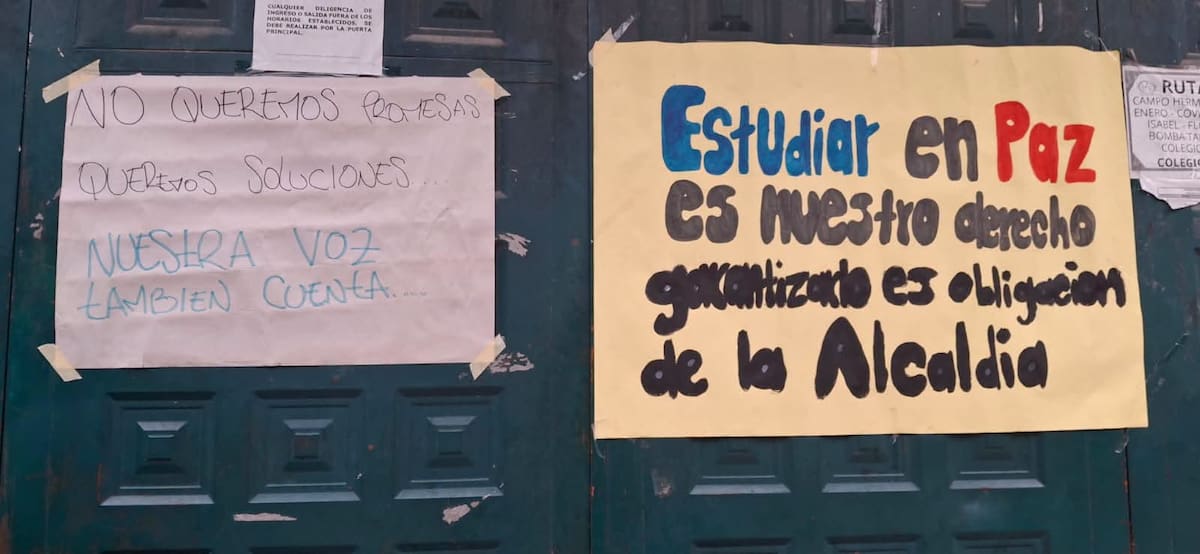 CUALQUIER DILIGENCIA DE
INGRESO O SALIDA FUERA DE LOS
HORARIOS ESTABLECIDOS, SE
DEBE REALIZAR POR LA PUERTA
PRINCIPAL.
NO QUEREMOS PROMESAS
QUEREMOS SOLUCIONES....
NUESTRA VOZ
tAMBIEN CUENTA....
Estudiar en Paz
es nuestro derecho
garantizarlo es obligacion
de la Alcaldia
RUTA
CAMPO HERM
ENERO - COV
ISABEL - FL
BOMBA TA
COLEGIO
COLEGIO